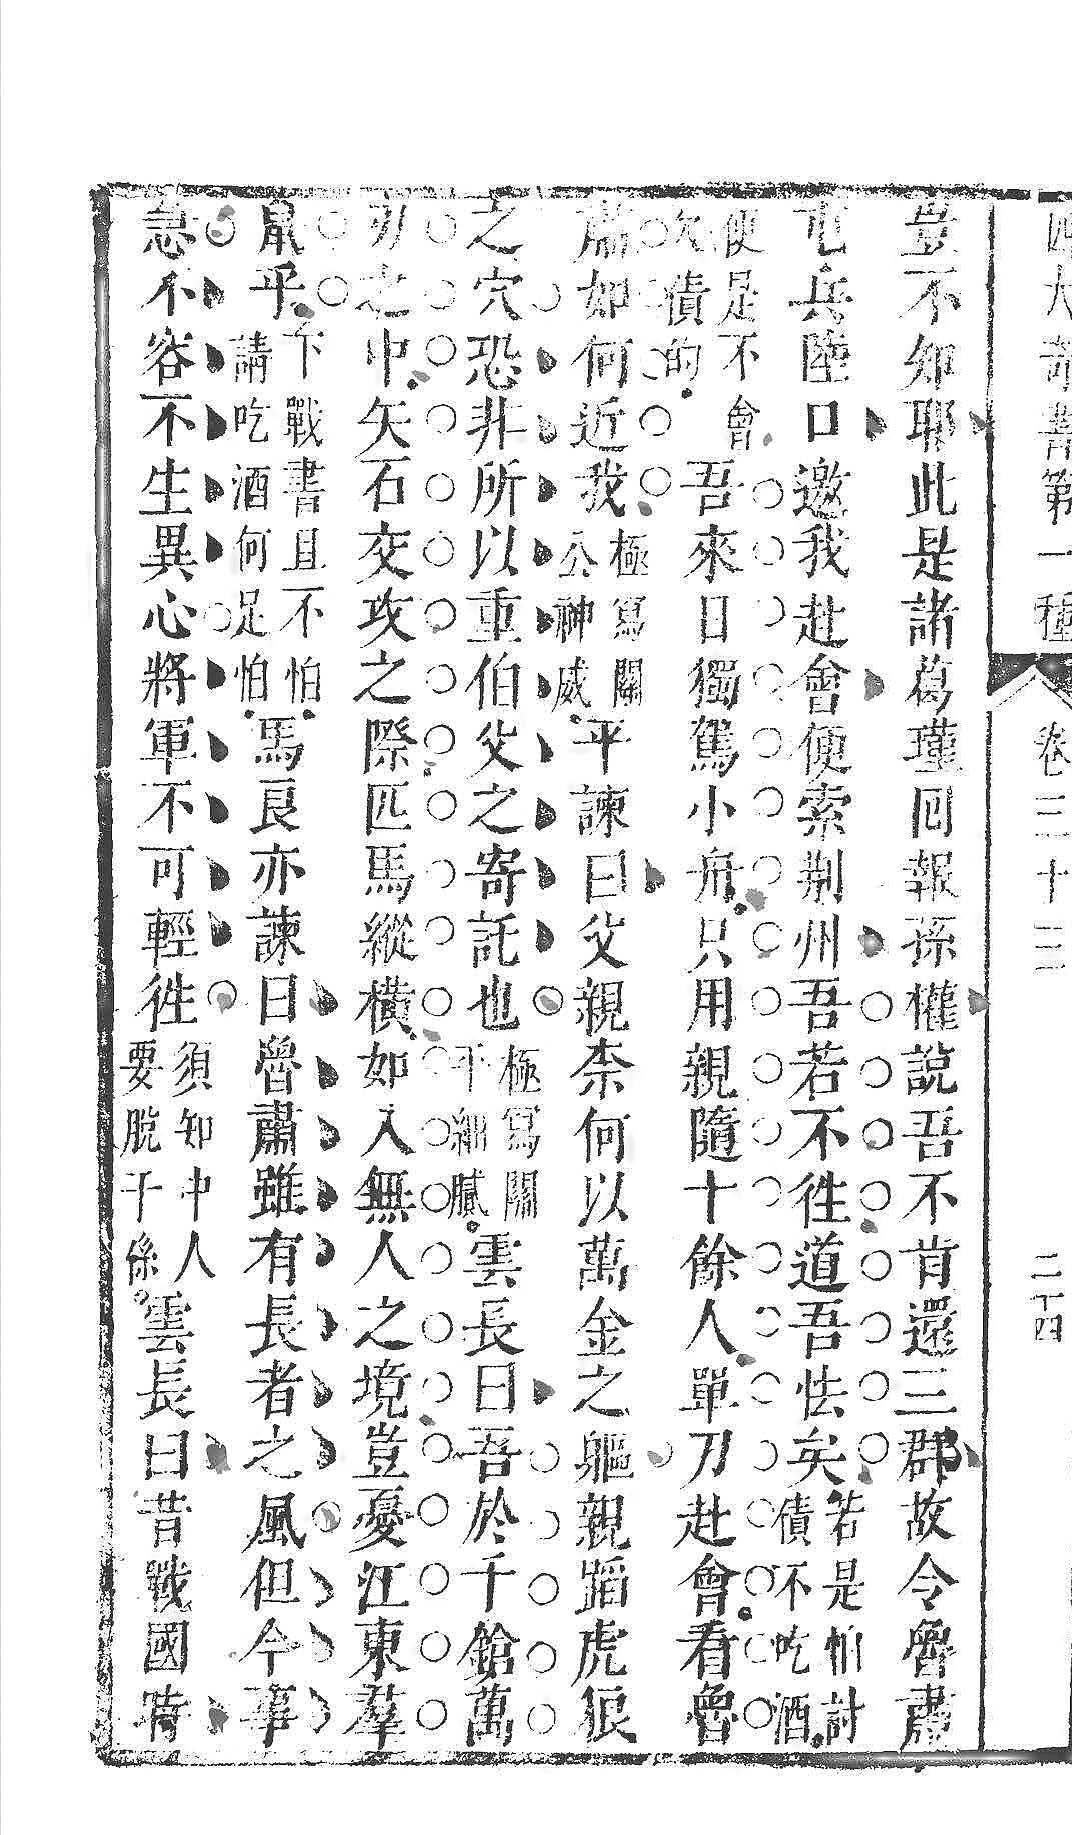 四大奇書第一種 卷三十三 二十四
豈不知耶此是諸葛瑾囘報孫權說吾不肯還三郡故令魯肅
屯兵陸口邀我赴會便索荆州吾若不徃道吾怯矣若是怕討債不吃酒
便是不會欠債的吾來日獨駕小舟只用親隨十餘人單刀赴會看魯
肅如何近我極寫關公神威平諫曰父親柰何以萬金之軀親蹈虎狼
之穴恐非所以重伯父之寄託也極寫關平細膩雲長曰吾於千鎗萬
刃之中矢石交攻之際匹馬縱橫如入無人之境豈憂江東羣
鼠乎下戰書且不怕請吃酒何足怕馬良亦諫曰魯肅雖有長者之風但今事
急不容不生異心將軍不可輕徃須知中人要脫干係雲長曰昔戰國時